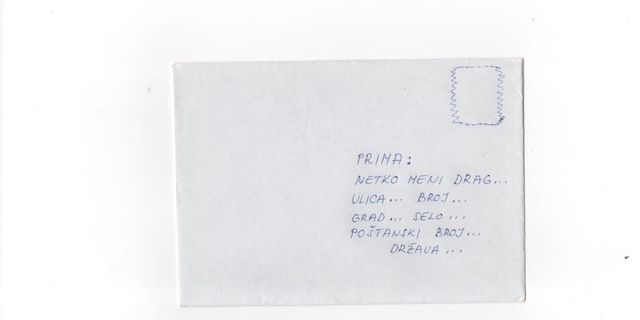 PRIMA:
NETKO MENI DRAG...
ULICA... BROJ...
GRAD... SELO...
POŠTANSKI BROJ...
DRŽAVA...